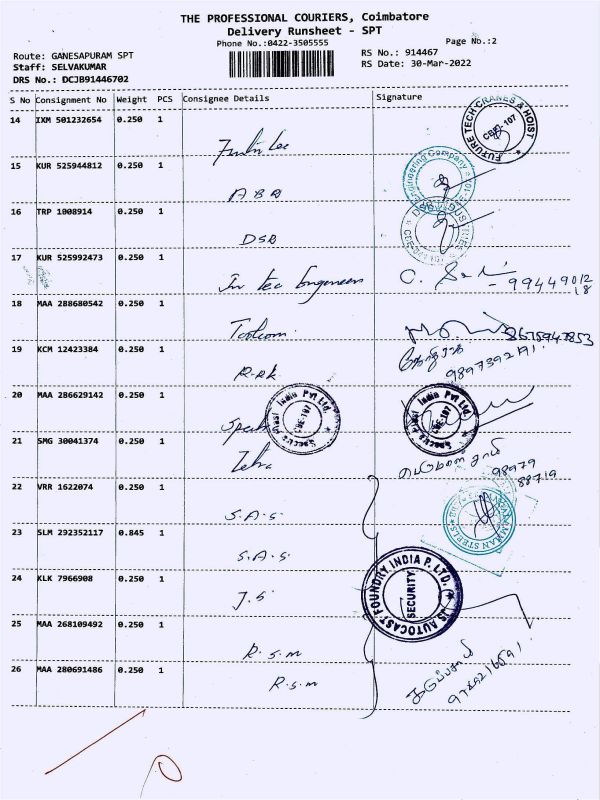 THE PROFESSIONAL COURIERS, Coimbatore
Delivery Runsheet - SPT
Phone No.:0422-3505555
Page No.:2
Route: GANESAPURAM SPT
Staff: SELVAKUMAR
DRS No.: DCJB91446702
RS No.: 914467
RS Date: 30-Mar-2022
S No Consignment No Weight PCS Consignee Details Signature
14 IXM 501232654 0.250 1
FUTURE TECH CRANES & HOIST CBE-107
15 KUR 525944812 0.250 1 ABR
Engineering Company
16 TRP 1008914 0.250 1 DSB
17 KUR 525992473 0.250 1 In tec Engineers
18 MAA 288680542 0.250 1
8675947853
19 KCM 12423384 0.250 1
9897392191
20 MAA 286629142 0.250 1
India Pvt Ltd. CBE-107
India Pvt Ltd. CBE-107
21 SMG 30041374 0.250 1
98979
88719
22 VRR 1622074 0.250 1 S.A.S.
AMMAN STEELS
23 SLM 292352117 0.845 1 S.A.S.
24 KLK 7966908 0.250 1 J.S
JS AUTOCAST FOUNDRY INDIA P. LTD. SECURITY
25 MAA 268109492 0.250 1 R.S.M
26 MAA 280691486 0.250 1 R.S.M